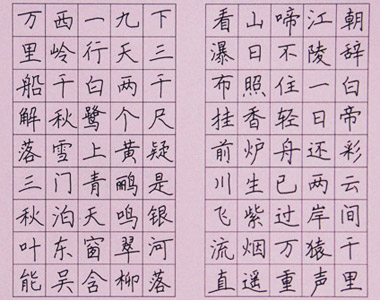 朝辞白帝彩云间千里
江陵一日还两岸猿声
啼不住轻舟已过万重
山日照香炉生紫烟遥
看瀑布挂前川飞流直
下三千尺疑是银河落
九天两个黄鹂鸣翠柳
一行白鹭上青天窗含
西岭千秋雪门泊东吴
万里船解落三秋叶能